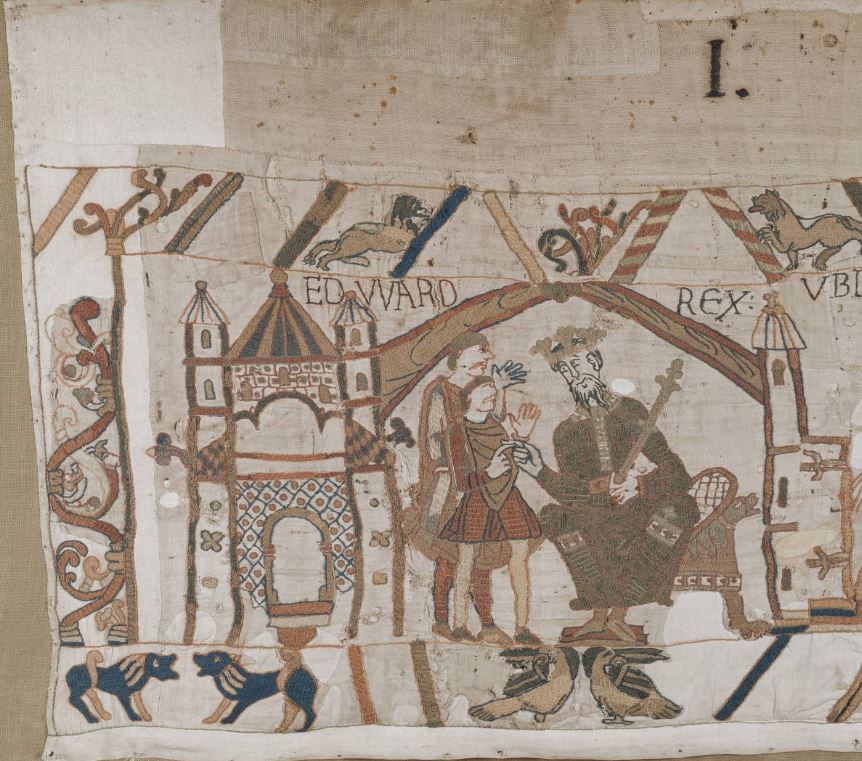 I.
EDVVARD REX: VB